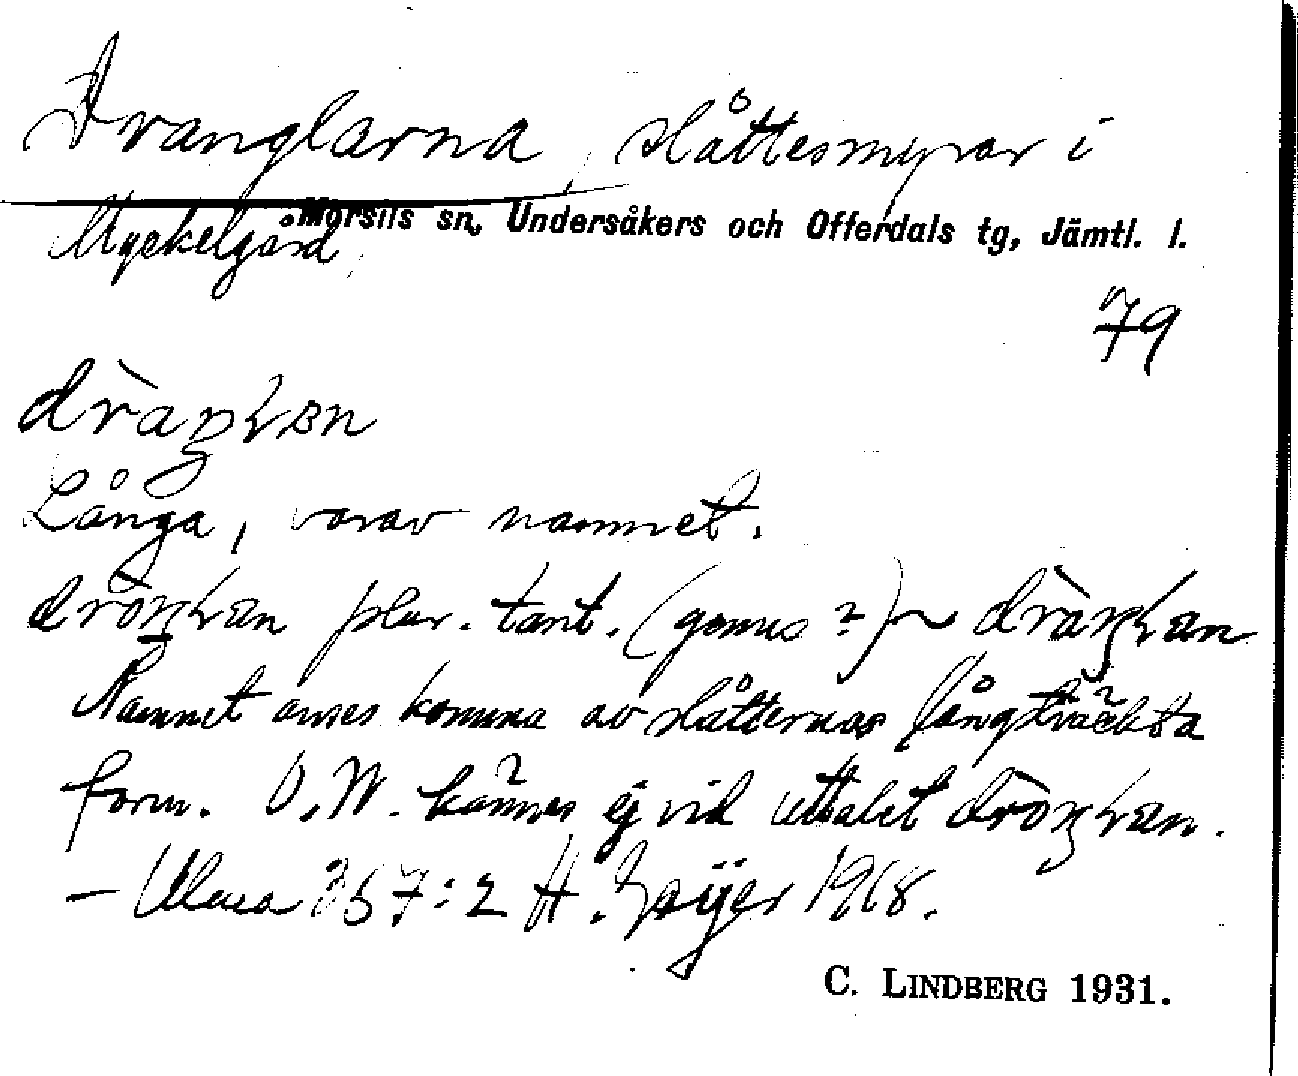 Dvanglarna, slåttesmyrar i
Myckelgård,
Mörsils sn, Undersåkers och Offerdals tg, Jämtl. l.
79
Långa, varav namnet.
plur. tant. (genus?) ~
Namnet anses komma av slåtternas långsträckta
form. O.W. känner ej vid uttalet
– Ulma 367:2 H. Geijer 1968.
C. LINDBERG 1931.